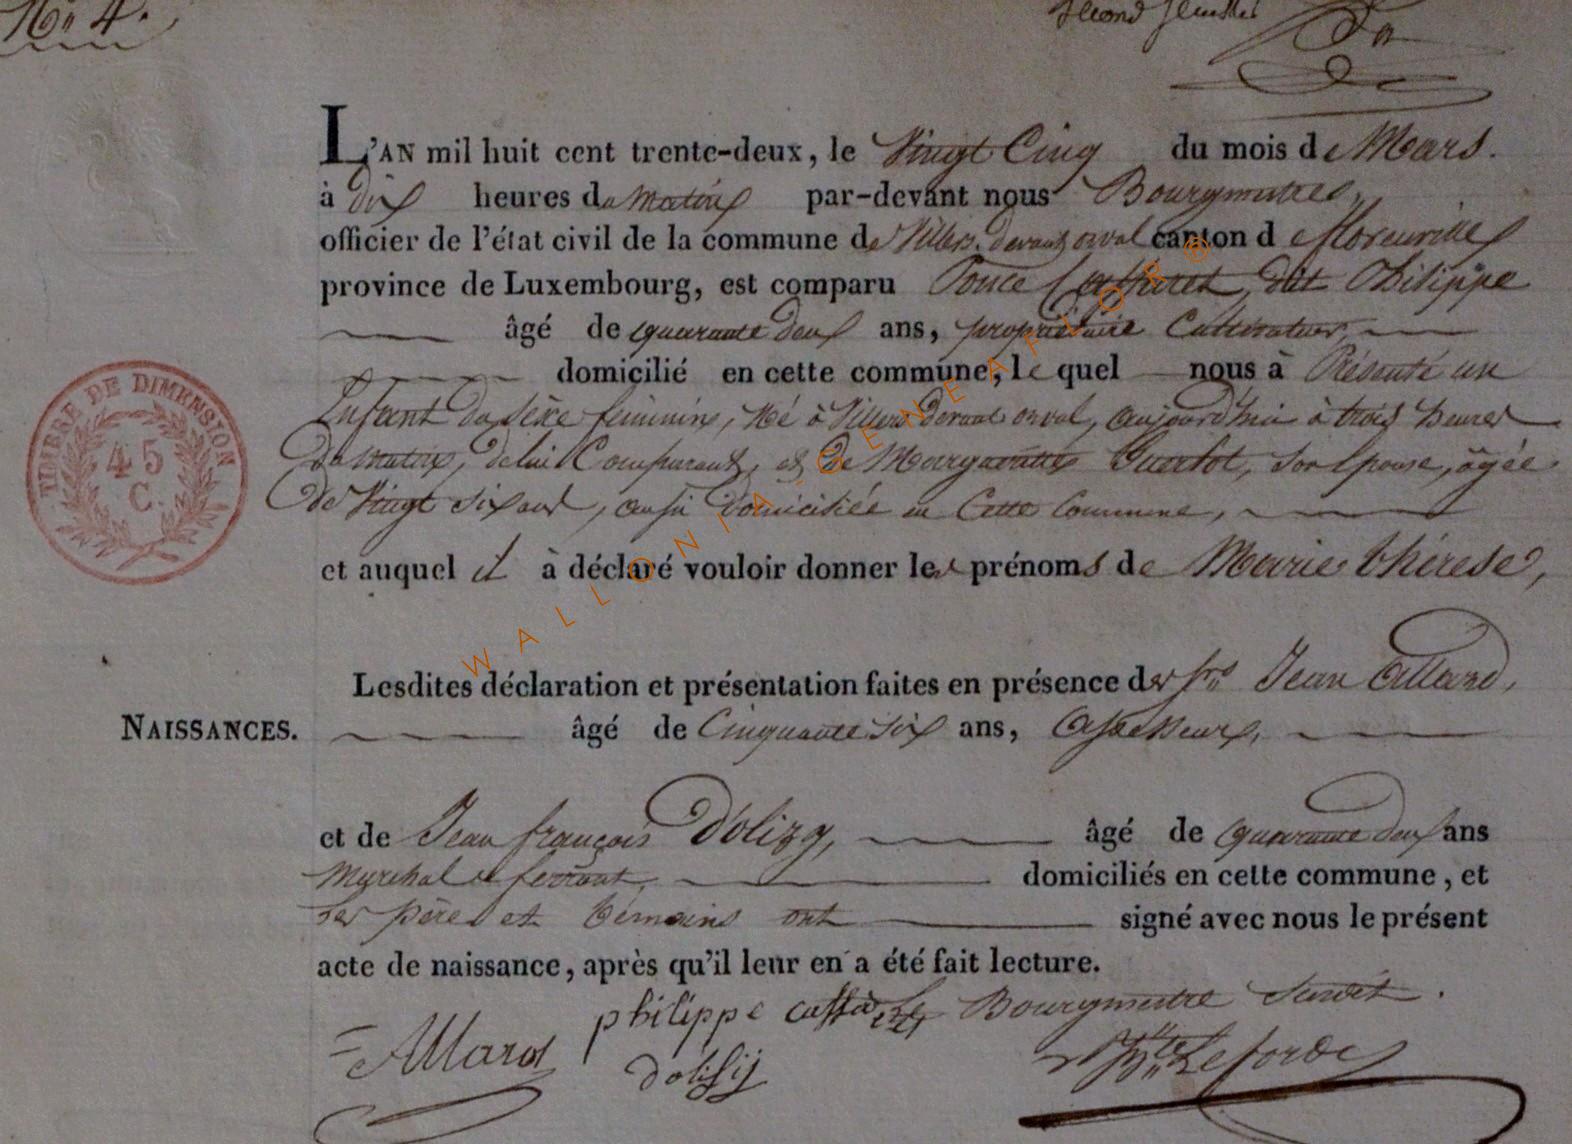 N° 4.
Second feuillet
L'AN mil huit cent trente-deux, le Vingt Cinq du mois de Mars.
à dix heures du matin par-devant nous Bourgmestre,
officier de l'état civil de la commune de Villers devant orval canton de florenville
province de Luxembourg, est comparu Ponce dit Philippe
âgé de quarante deux ans, propriétaire Cultivateur,
domicilié en cette commune, le quel nous à Présenté un
Enfant du sexe féminin, Né à Villers devant orval, aujourd'hui à trois heures
du matin, de lui Comparant, et de Margueritte Guerlot, son Epouse, âgée
de Vingt six ans, aussi domiciliée en Cette Commune,
et auquel il à déclaré vouloir donner les prénoms de Marie thérese,
Lesdites déclaration et présentation faites en présence des srs Jean Allard,
NAISSANCES.
âgé de Cinquante six ans, Assesseur,
et de Jean françois D'olizy, âgé de quarante deux ans
Marchal ferrant, domiciliés en cette commune, et
les père et témoins ont signé avec nous le présent
acte de naissance, après qu'il leur en a été fait lecture.
philippe Le Bourgmestre Susdit.
Allard
dolisij
Leforde
TIMBRE DE DIMENSION
45
C.
WALLONIA-GENEAFLOR®